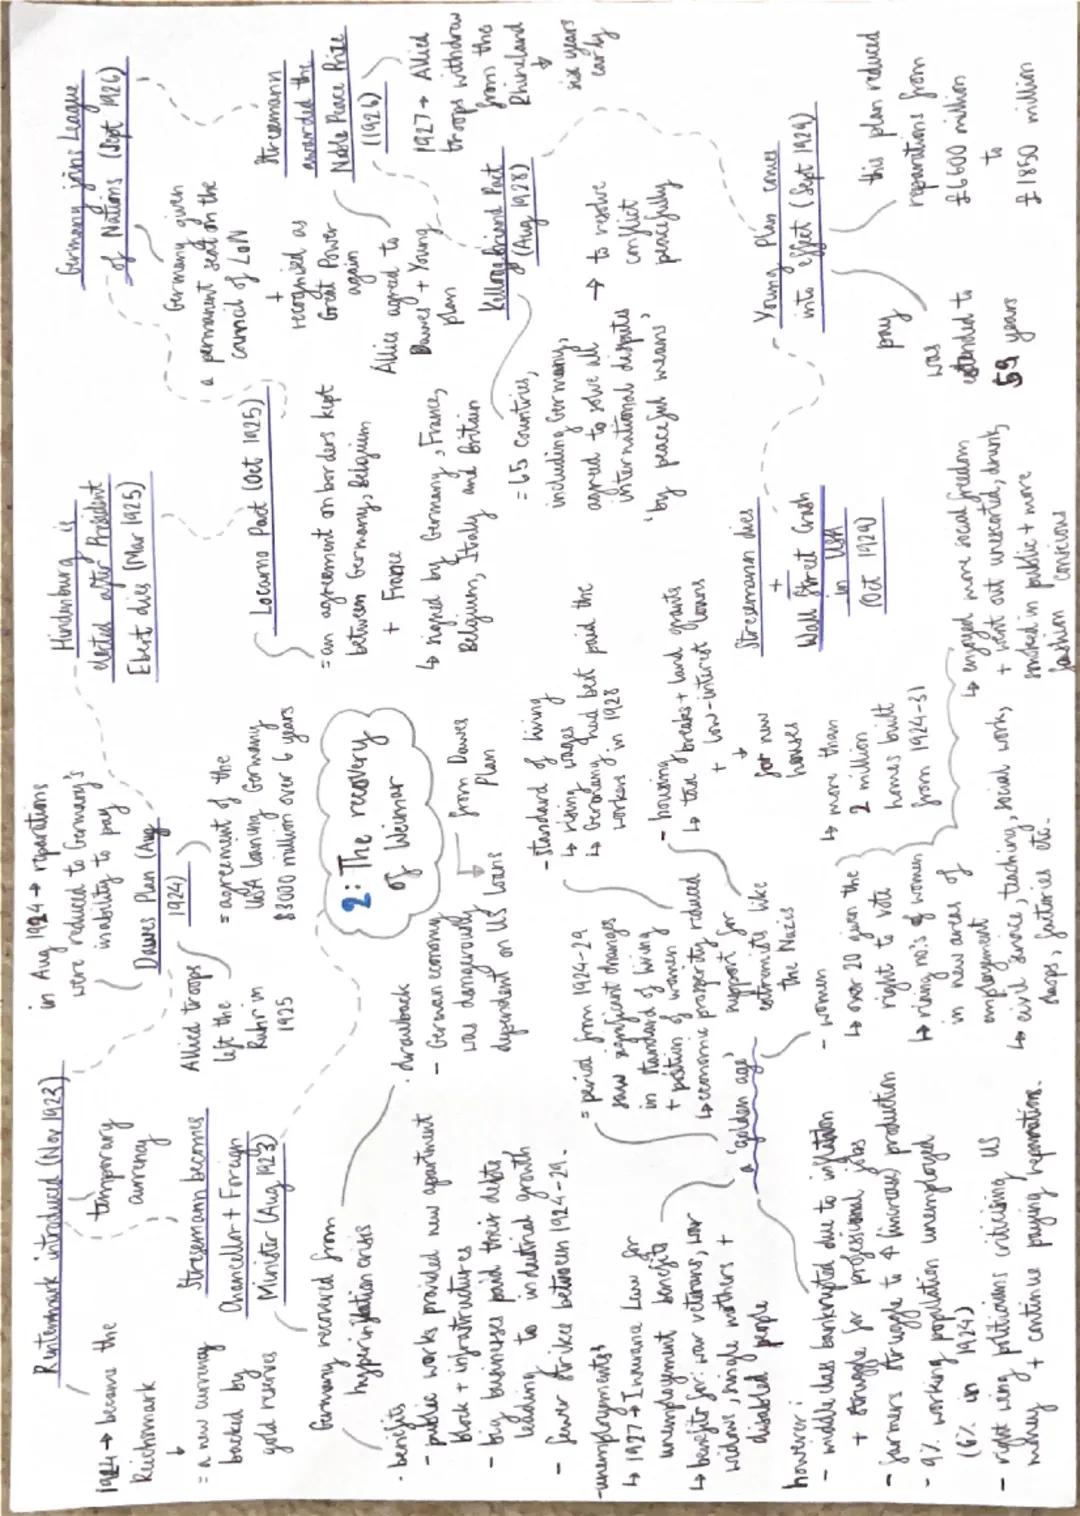 2: The recovery
of Weimar
Stresemann becomes
Chancellor + Foreign
Minister (Aug 1923)
Germany recovered from
hyperinflation crisis
· benefits
- public works provided new apartment
block + infrastructures
- big businesses paid their debts
leading to industrial growth
- fewer strikes between 1924-29.
· drawback
- German economy
was dangerously
dependent on US loans
from Dawes
Plan
Rentenmark introduced (Nov 1923)
temporary
currency
1924 → became the
Reichsmark
= a new currency
backed by
gold reserves
in Aug 1924 → reparations
were reduced to Germany's
inability to pay
Dawes Plan (Aug
1924)
Allied troops
left the
Ruhr in
1925
= agreement of the
USA loaning Germany
$3000 million over 6 years
Hindenburg is
elected after President
Ebert dies (Mar 1925)
Locarno Pact (Oct 1925)
= an agreement on borders kept
between Germany, Belgium
+ France
↳ signed by Germany, France,
Belgium, Italy and Britain
Germany joins League
of Nations (Sept 1926)
Germany given
a permanent seat on the
council of LoN
+
recognised as
Great Power
again
Stresemann
awarded the
Noble Peace Prize
(1926)
Allies agreed to
Dawes + Young
plan
1927 → Allied
troops withdrew
from the
Rhineland
↓
six years
early
Kellogg Briand Pact
(Aug 1928)
= 65 countries,
including Germany,
agreed to solve all
international disputes
'by peaceful means'
→ to resolve
conflict
peacefully
Young Plan comes
into effect (Sept 1929)
pay
was
extended to
59 years
this plan reduced
reparations from
£6600 million
to
£1850 million
Stresemann dies
+
Wall Street Crash
in USA
(Oct 1929)
a 'golden age'
= period from 1924-29
saw significant changes
in standard of living
+ position of women
↳ economic prosperity reduced
support for
extremists like
the Nazis
- standard of living
↳ rising wages
↳ Germany had best paid the
workers in 1928
- housing
↳ tax breaks + land grants
+ low-interest loans
↓
for new
houses
↳ more than
2 million
homes built
from 1924-31
- women
↳ over 20 given the
right to vote
↳ rising no.s of women
in new areas of
employement
↳ civil service, teaching, social work,
shops, factories etc.
↳ enjoyed more social freedom
+ went out unescorted, drunk,
smoked in public + more
fashion conscious
- unemployements
↳ 1927 → Insurance Law for
unemployment benefits
↳ benefits for: war veterans, war
widows, single mothers +
disabled people
however:
- middle class bankrupted due to inflation
+ struggle for professional jobs
- farmers struggle to ↑ (increase) production
- 9% working population unemployed
(6% in 1924)
- right wing politicians criticising US
money + continue paying reparations.